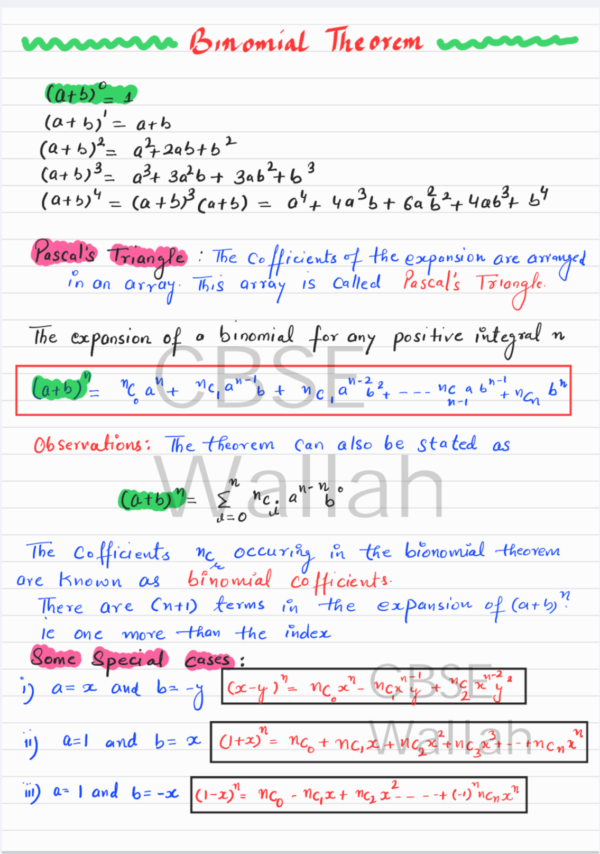 Binomial Theorem
(a+b)⁰ = 1
(a+b)¹ = a+b
(a+b)² = a²+2ab+b²
(a+b)³ = a³+3a²b+3ab²+b³
(a+b)⁴ = (a+b)³(a+b) = a⁴+4a³b+6a²b²+4ab³+b⁴
Pascal's Triangle : The Cofficients of the expansion are arranged
in an array. This array is called Pascal's Triangle.
The expansion of a binomial for any positive integral n
(a+b)ⁿ = ⁿC₀aⁿ + nC₁aⁿ⁻¹b + nC₁aⁿ⁻²b² + ---- nCₙ₋₁abⁿ⁻¹ + nCₙbⁿ
CBSE
Wallah
Observations: The theorem can also be stated as
(a+b)ⁿ = Σ
The Cofficients nCᵣ occuring in the bionomial theorem
are known as binomial cofficients.
There are (n+1) terms in the expansion of (a+b)ⁿ.
ie one more than the index
Some Special cases:
i) a=x and b=-y (x-y)ⁿ = nC₀xⁿ - nC₁xⁿ⁻¹y + nC₂xⁿ⁻²y²
ii) a=1 and b=x (1+x)ⁿ = nC₀ + nC₁x + nC₂x² + nC₃x³ + --+nCₙxⁿ
iii) a=1 and b=-x (1-x)ⁿ = nC₀ - nC₁x + nC₂x² ---- +(-1)ⁿnCₙxⁿ
CBSE
Wallah